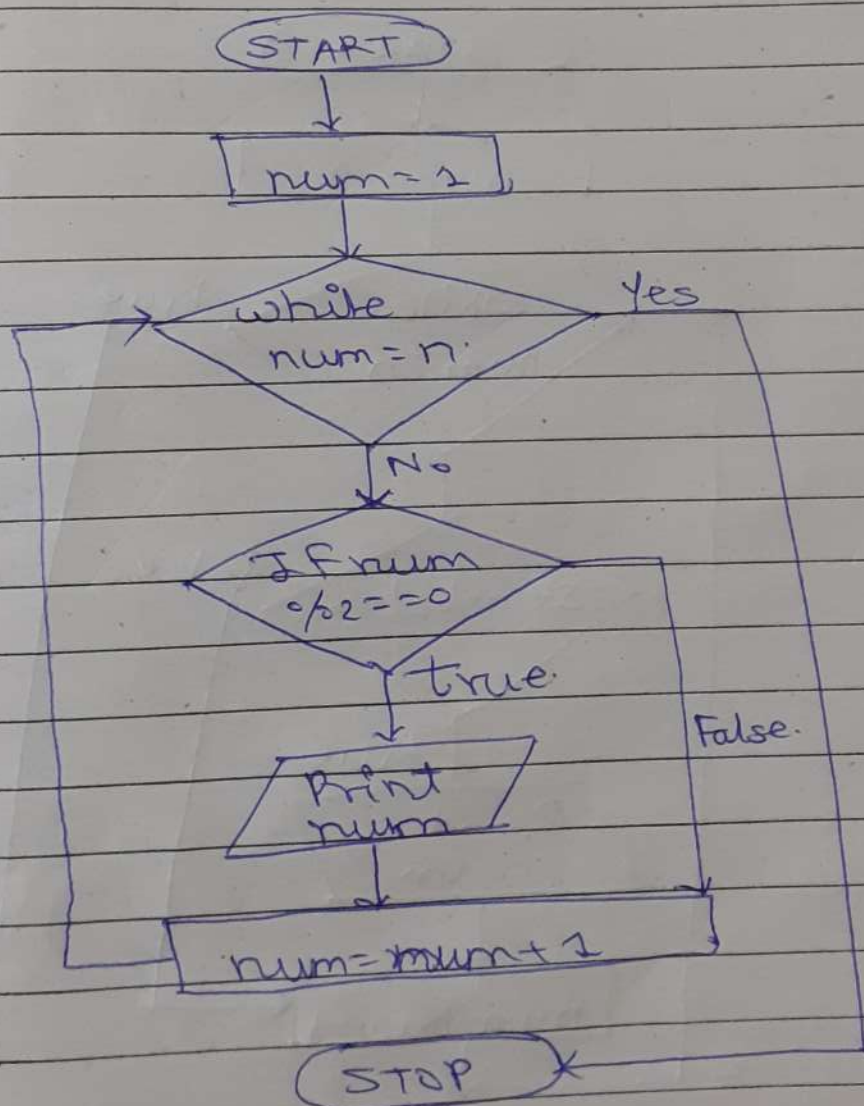 START
num=1
while
num=n.
Yes
No
If num
%2==0
true.
False.
Print
num
num=num+1
STOP